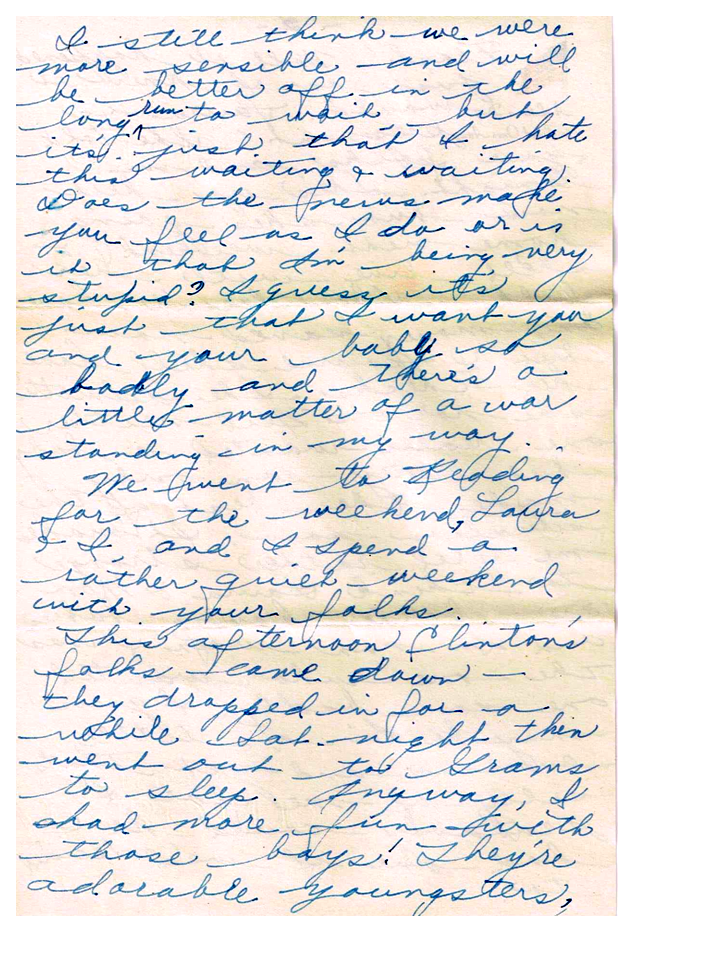 I still think we were
more sensible and will
be better off in the
long run to wait, but
it's just that I hate
this waiting & waiting.
Does the news make
you feel as I do or is
it that I'm being very
stupid? I guess it's
just that I want you
and your baby so
badly and there's a
little matter of a war
standing in my way.
We went to Reading
for the weekend, Laura
& I, and I spend a
rather quiet weekend
with your folks.
This afternoon Clinton's
folks came down —
they dropped in for a
while Sat. night then
went out to Grams
to sleep. Anyway, I
had more fun with
those boys! They're
adorable youngsters,